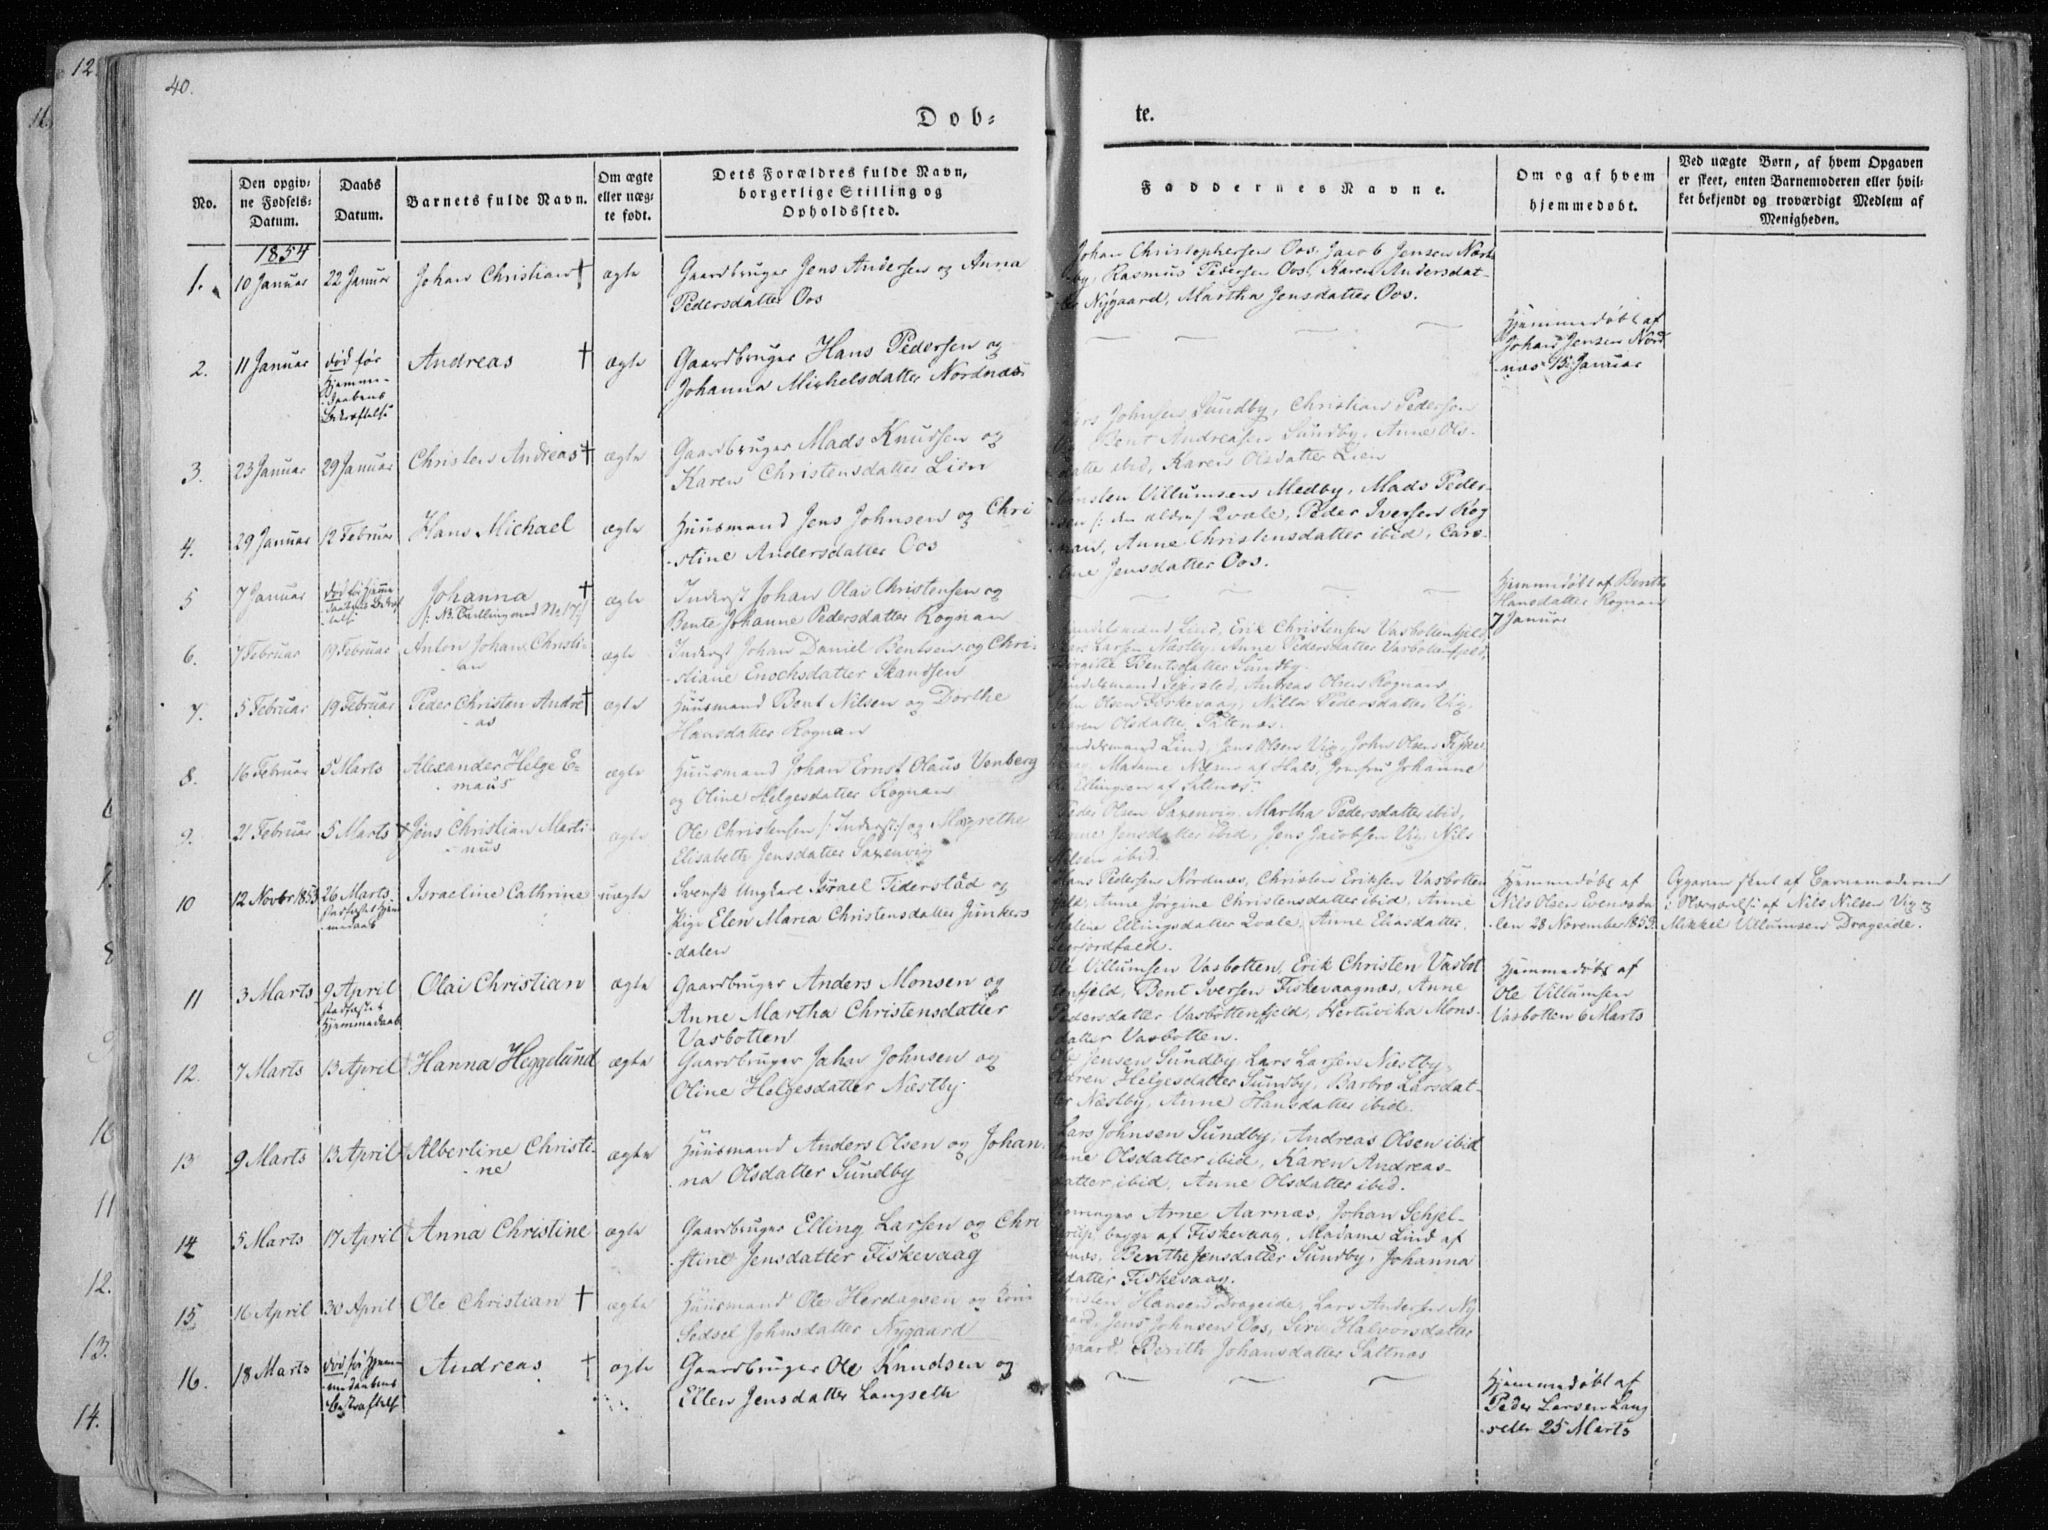 40.
Døb=
te.
No.
Den opgiv-
ne Fødsels-
Datum.
Daabs
Datum.
Barnets fulde Navn.
Om ægte
eller uæg-
te født.
Dets Forældres fulde Navn,
borgerlige Stilling og
Opholdssted.
Faddernes Navne.
Om og af hvem
hjemmedøbt.
Ved uægte Børn, af hvem Opgaven
er skeet, enten Barnemoderen eller hvil-
ket bekjendt og troværdigt Medlem af
Menigheden.
1854
1.
10 Januar
22 Januar
Johan Christian †
ægte
Gaardbruger Jens Andersen og Anna
Pedersdatter Oos
Johan Christophersen Oos, Jacob Jensen Næst
by, Rasmus Pedersen Oos, Karen Andersdat-
ter Nygaard, Martha Jensdatter Oos.
2.
11 Januar
død før
Hjemme-
daabens
Bekræftelse
Andreas †
ægte
Gaardbruger Hans Pedersen og
Johanna Michelsdatter Nordnæs
Hjemmedøbt af
Johan Jensen Nord
næs 15 Januar
3.
23 Januar
29 Januar
Christen Andreas †
ægte
Gaardbruger Mads Knudsen og
Karen Christensdatter Lien
Lars Johnsen Sundby, Christian Pedersen
Bent Andreasen Sundby, Anne Ols-
datter ibid, Karen Olsdatter Lien
4.
29 Januar
12 Februar
Hans Michael
ægte
Huusmand Jens Johnsen og Chri
-stine Andersdatter Oos
Villumsen Medby, Mads Peder-
-sen /: den ældre/ Qvale, Peder Iversen Rog
nan, Anne Christensdatter ibid, Cars-
Jensdatter Oos.
5
7 Januar
død før Hjemme
daabens Bekræf
telse
Johanna †
/: NB. Tvilling med No 17:/
ægte
Inderst Johan Olai Christensen og
Bente Johanne Pedersdatter Rognan
Hjemmedøbt af Berith
Hansdatter Rognan
7 Januar
6.
7 Februar
19 Februar
Anton Johan Christi-
an
ægte
Inderst Johan Daniel Bentsen og Chri-
-stiane Enochsdatter Skandsen
Handelsmand Lind, Erik Christensen Vasbottenfjeld,
Lars Larsen Næstby, Anne Pedersdatter Vasbottenfjeld,
Birgitte Bentsdatter Sundby.
7.
5 Februar
19 Februar
Peder Christen Andre †
as
ægte
Huusmand Bent Nilsen og Dorthe
Hansdatter Rognan
Handelsmand Sejersted, Andreas Olsen Rognan,
John Olsen Fiskevaag, Nilla Pedersdatter Vig,
Karen Olsdatter Saltnæs.
8.
16 Februar
5 Marts
Alexander Helge E-
maus
ægte
Huusmand Johan Ernst Olaus Venberg
og Oline Helgesdatter Rognan
Handelsmand Lind, Jens Olsen Vig, John Olsen Fiske
vaag, Madame Næsen af Hals, Jomfru Johanne
Ellingsen af Saltnæs
9.
21 Februar
5 Marts
Jens Christian Marti-
nus
ægte
Ole Christensen /: Inderst:/ og Margrethe
Elisabeth Jensdatter Saxenvig
Peder Olsen Saxenvig, Martha Pedersdatter ibid,
Jensdatter ibid, Jens Jacobsen Vig, Nils
Nilsen ibid.
10
12 Novbr 1853
26 Marts
stadfæstet Hjem
medaab
Israeline Cathrine
uægte
Svensk Ungkarl Israel Tiderståd og
Pige Elen Maria Christensdatter Junkers
-dalen
Hans Pedersen Nordnæs, Christen Eriksen Vasbotten
fjeld, Anne Jørgine Christensdatter ibid, Anne
Malene Ellingsdatter Qvale, Anne Eliasdatter
Hjemmedøbt af
Nils Olsen Evensda
len 28 November 1853.
Opgaven skeet af Barnemoderen
i Overværelse af Nils Nilsen Vig og
Mikkel Villumsen Drageide.
11
3 Marts
9 April
stadfæstet
Hjemmedaab
Olai Christian
ægte
Gaardbruger Anders Monsen og
Anne Martha Christensdatter
Vasbotten
Ole Villumsen Vasbotten, Erik Christen Vasbot
tenfjeld, Bent Iversen Fiskevaagnæs, Anne
Pedersdatter Vasbottenfjeld, Hertvika Mons-
datter Vasbotten.
Hjemmedøbt af
Ole Villumsen
Vasbotten 6 Marts
12.
7 Marts
13 April
Hanna Heggelund
ægte
Gaardbruger John Johnsen og
Oline Helgesdatter Næstby.
Jensen Sundby, Lars Larsen Næstby,
Karen Helgesdatter Sundby, Barbro Larsdat-
ter Næstby, Anne Hansdatter ibid.
13
9 Marts
13 April
Albertine Christi-
-ne
ægte
Huusmand Anders Olsen og Johan-
na Olsdatter Sundby
Lars Johnsen Sundby, Andreas Olsen ibid
Olsdatter ibid, Karen Andreas-
datter ibid, Anne Olsdatter ibid.
14
5 Marts
17 April
Anna Christine
ægte
Gaardbruger Elling Larsen og Chri
-stine Jensdatter Fiskevaag
Arne Aarnæs, Johan Schjel-
begge af Fiskevaag, Madame Lind af
Benthe Jensdatter Sundby, Johanna
datter Fiskevaag.
15.
16 April
30 April
Ole Christian †
ægte
Huusmand Ole Herdagsen og Kone
Sedsel Johnsdatter Nygaard
Christen Hansen Drageide, Lars Andersen Ny
gaard, Jens Johnsen Oos, Siri Halvorsdatter
Nygaard, Berith Johansdatter Saltnæs
16.
18 Marts
død før Hjem-
medaabens
Bekræftelse
Andreas †
ægte
Gaardbruger Ole Knudsen og
Ellen Jensdatter Langseth
Hjemmedøbt af
Peder Larsen Lang
-seth 25 Marts